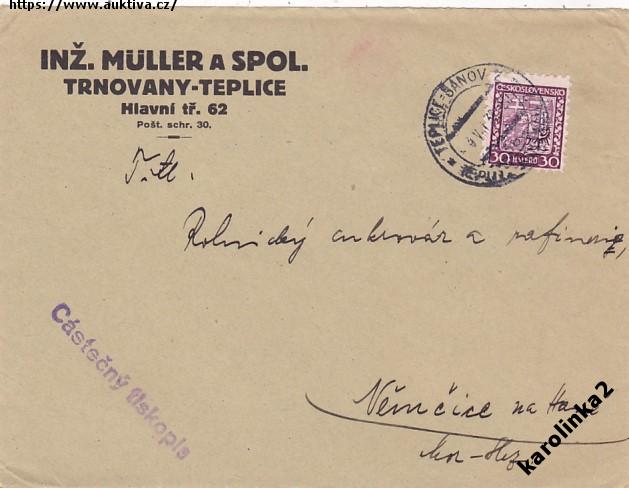 https://www.auktiva.cz/
INŽ. MÜLLER A SPOL.
TRNOVANY-TEPLICE
Hlavní tř. 62
Pošt. schr. 30.
TEPLICE-ŠANOV
ČESKOSLOVENSKO
30 HALÉŘŮ 30
Titl.
Rolnický cukrovar a rafinerie,
Částečný tiskopis
Němčice na Hané
karolinka2